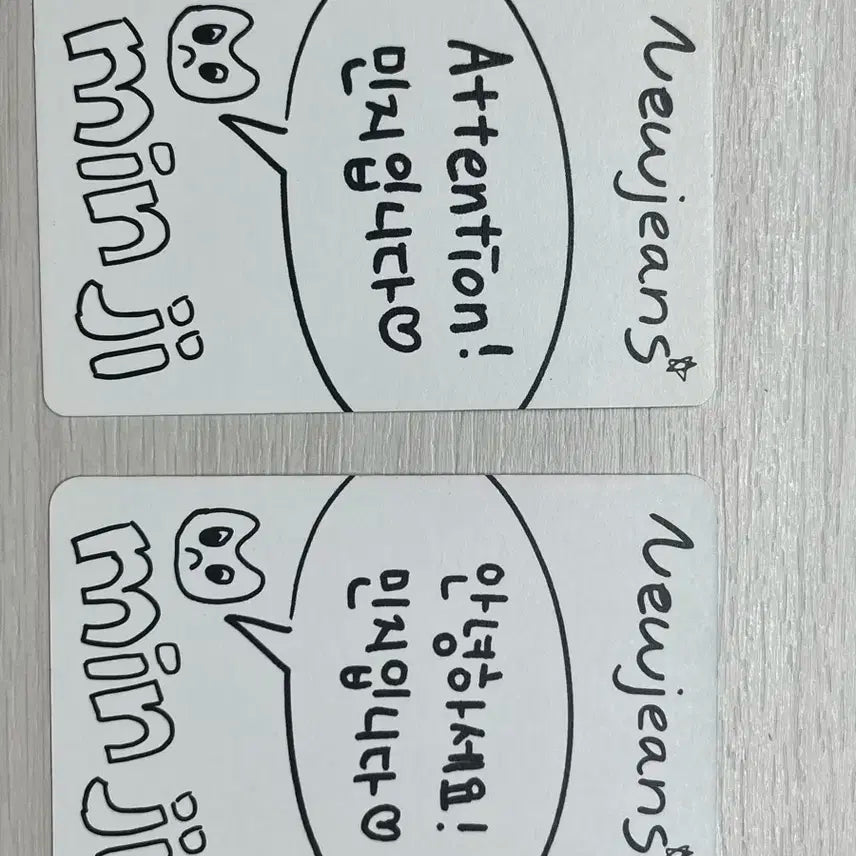 Newjeans
Attention!
민지입니다♡
min ji
Newjeans
안녕하세요!
민지입니다♡
min ji